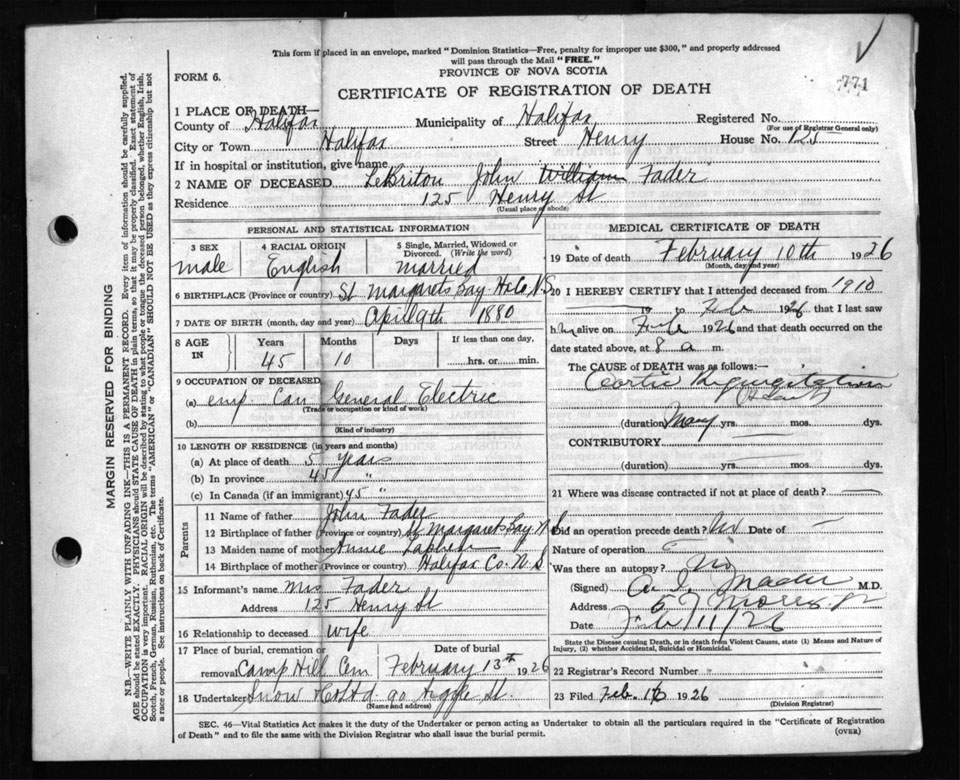 This form if placed in an envelope, marked "Dominion Statistics—Free, penalty for improper use $300," and properly addressed
will pass through the Mail "FREE."
771
FORM 6.
PROVINCE OF NOVA SCOTIA
CERTIFICATE OF REGISTRATION OF DEATH
1 PLACE OF DEATH—
County of Halifax Municipality of Halifax Registered No.
(For use of Registrar General only)
City or Town Halifax Street Henry House No. 125
If in hospital or institution, give name
2 NAME OF DECEASED LeBriton John William Fader
Residence 125 Henry St
(Usual place of abode)
PERSONAL AND STATISTICAL INFORMATION
3 SEX male
4 RACIAL ORIGIN English
5 Single, Married, Widowed or
Divorced. (Write the word)
married
6 BIRTHPLACE (Province or country) St Margarets Bay Hfx Co N.S
7 DATE OF BIRTH (month, day and year) April 9th 1880
8 AGE IN Years 45 Months 10 Days If less than one day, hrs. or min.
9 OCCUPATION OF DECEASED
(a) emp. Can General Electric
(Trade or occupation or kind of work)
(b)
(Kind of industry)
10 LENGTH OF RESIDENCE (in years and months)
(a) At place of death 5 years
(b) In province 45 "
(c) In Canada (if an immigrant) 45 "
Parents
11 Name of father John Fader
12 Birthplace of father (Province or country) St Margarets Bay N S
13 Maiden name of mother
14 Birthplace of mother (Province or country) Halifax Co. N.S
15 Informant's name Mrs Fader
Address 125 Henry St
16 Relationship to deceased wife
17 Place of burial, cremation or
removal Camp Hill Cem
Date of burial
February 13th 1926
18 Undertaker Snow & Co Ltd 90 Argyle St.
(Name and address)
MEDICAL CERTIFICATE OF DEATH
19 Date of death February 10th 1926
(Month, day and year)
20 I HEREBY CERTIFY that I attended deceased from 1910
19 to Feb 1926 that I last saw
him alive on Feb 1926 and that death occurred on the
date stated above, at 8 a m.
The CAUSE of DEATH was as follows:—
Aortic Regurgitation
(duration) Many yrs. mos. dys.
CONTRIBUTORY
(duration) yrs. mos. dys.
21 Where was disease contracted if not at place of death?
Did an operation precede death? No Date of —
Nature of operation
Was there an autopsy? No
(Signed) A. I. Mader M.D.
Address 57 Morris St
Date Feb 11/26
State the Disease causing Death, or in death from Violent Causes, state (1) Means and Nature of
Injury, (2) whether Accidental, Suicidal or Homicidal.
22 Registrar's Record Number
23 Filed Feb. 16 1926
(Division Registrar)
SEC. 46—Vital Statistics Act makes it the duty of the Undertaker or person acting as Undertaker to obtain all the particulars required in the "Certificate of Registration
of Death" and to file the same with the Division Registrar who shall issue the burial permit.
(OVER)
MARGIN RESERVED FOR BINDING
N.B.—WRITE PLAINLY WITH UNFADING INK—THIS IS A PERMANENT RECORD. Every item of information should be carefully supplied.
AGE should be stated EXACTLY. PHYSICIANS should STATE CAUSE OF DEATH in plain terms, so that it may be properly classified. Exact statement of
OCCUPATION is very important. RACIAL ORIGIN will be described by stating to what people or tongue the deceased person belonged, whether English, Irish,
Scotch, French, German, Russian, Ruthenian, etc. The terms "AMERICAN" or "CANADIAN" SHOULD NOT BE USED as they express citizenship but not
a race or people. See instructions on back of Certificate.